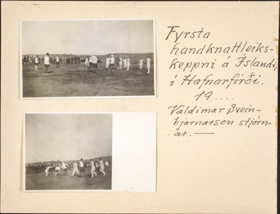 Fyrsta
handknattleiks-
keppni á Íslandi,
í Hafnarfirði.
19....
Valdimar Svein-
bjarnarson stjórn-
ar. —